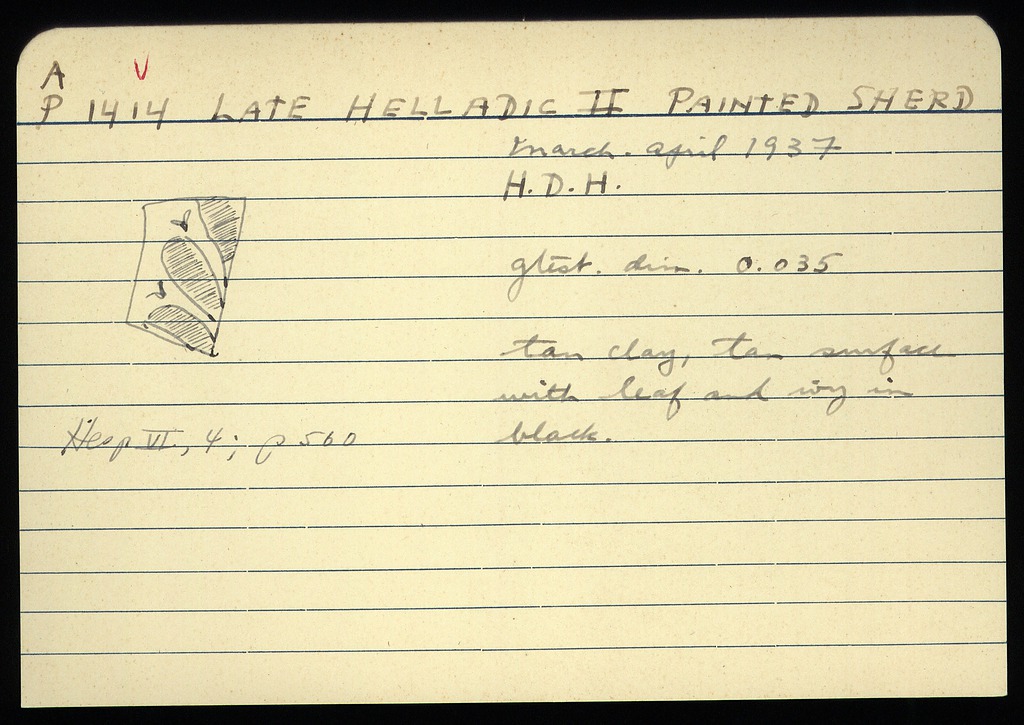 A V
P 1414 LATE HELLADIC II PAINTED SHERD
March - April 1937
H. D. H.
gtest. dim. 0.035
tan clay, tan surface
with leaf and ivy in
black.
Hesp VI, 4; p 560